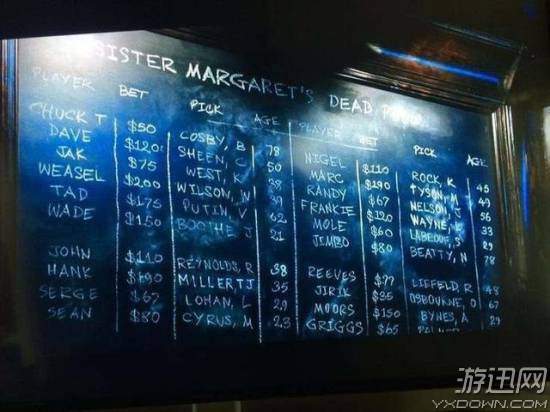 SISTER MARGARET'S DEAD
PLAYER BET PICK AGE PLAYER BET PICK AGE
CHUCK T $50 COSBY, B 78 NIGEL $110 ROCK, K 45
DAVE $120 SHEEN, C 50 MARC $190 TYSON, M 49
JAK $75 WEST, K 38 RANDY $67 NELSON, J 56
WEASEL $200 WILSON, W 39 FRANKIE $120 WAYNE, L 33
TAD $175 PUTIN, V 62 MOLE $60 LABEOUF, S 29
WADE $150 BOOTHE, J 21 JIMBO $80 BEATTY, N 78
JOHN $110 REYNOLDS, R 38 REEVES $77 LIEFELD, R 48
HANK $190 MILLER TJ 35 JIRIK $35 OSBOURNE, O 67
SERGE $67 LOHAN, L 29 MOORS $150 BYNES, A 29
SEAN $80 CYRUS, M 23 GRIGGS $65
游迅网
YXDOWN.COM